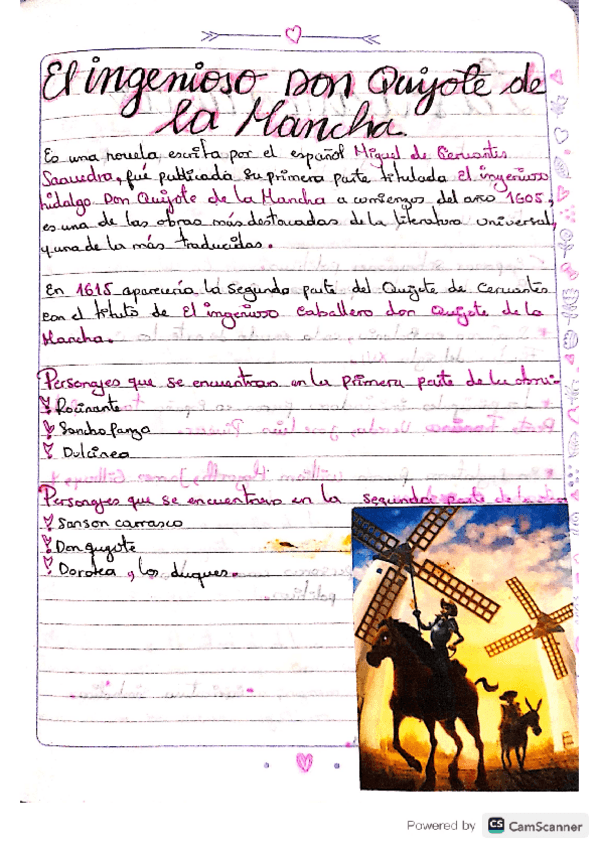 El ingenioso Don Quijote de
la Mancha
Es una novela escrita por el español Miguel de Cervantes
Saavedra, fué publicada su primera parte titulada El ingenioso
hidalgo Don Quijote de la Mancha a comienzos del año 1605,
es una de las obras más destacadas de la literatura universal,
y una de la más traducidas.
En 1615 aparecería la segunda parte del Quijote de Cervantes
con el título de El ingenioso caballero don Quijote de la
Mancha.
Personajes que se encuentran en la primera parte de la obra:
Rocinante
Sancho panza
Dulcinea
Personajes que se encuentran en la segunda parte de la obra
Sanson carrasco
Don quijote
Dorotea, los duques.
Powered by CS CamScanner